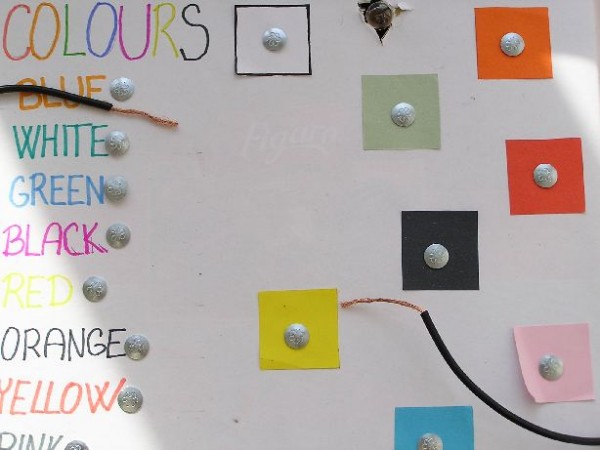 COLOURS
BLUE
WHITE
GREEN
BLACK
RED
ORANGE
YELLOW
PINK